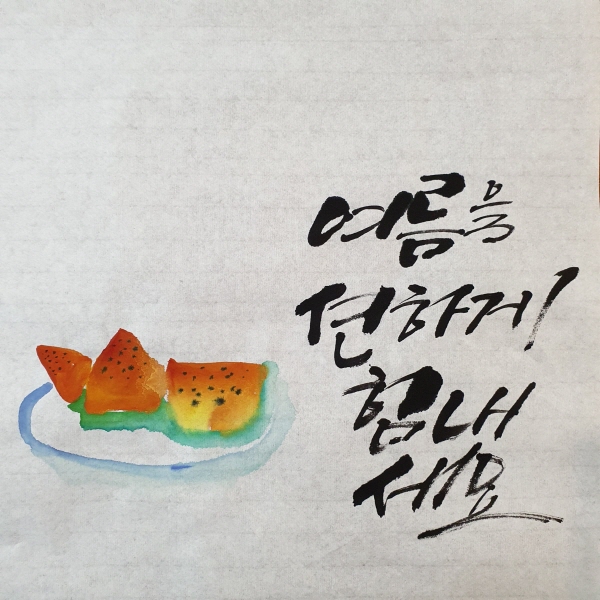 여름을
션하게
힘내
세요